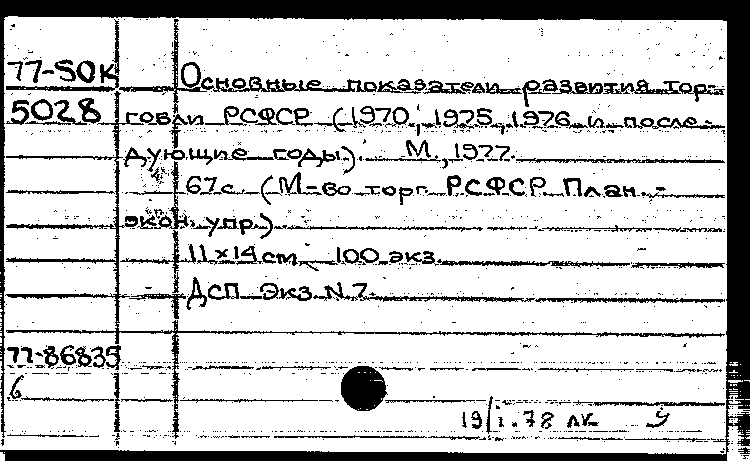 77-SOK
5028
Основные показатели развития тор-
говли РСФСР (1970, 1975, 1976 и после-
дующие годы). М., 1977.
67с. (М-во торг. РСФСР План.-
экон. упр.)
11x14 см 100 экз.
ДСП Экз. N 7.
77-86835
6
19/I.78